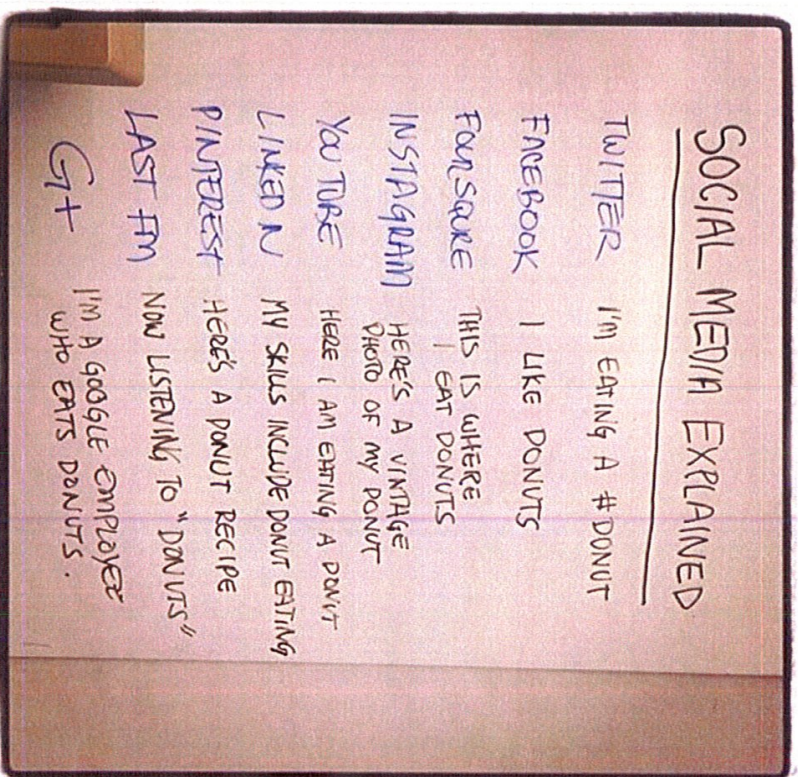 SOCIAL MEDIA EXPLAINED
TWITTER I'M EATING A #DONUT
FACEBOOK I LIKE DONUTS
FOURSQURE THIS IS WHERE
I EAT DONUTS
INSTAGRAM HERE'S A VINTAGE
PHOTO OF MY DONUT
YOU TUBE HERE I AM EATING A DONUT
LINKED N MY SKILLS INCLUDE DONUT EATING
PINTEREST HERE'S A DONUT RECIPE
LAST FM NOW LISTENING TO "DONUTS"
G+ I'M A GOOGLE EMPLOYEE
WHO EATS DONUTS.